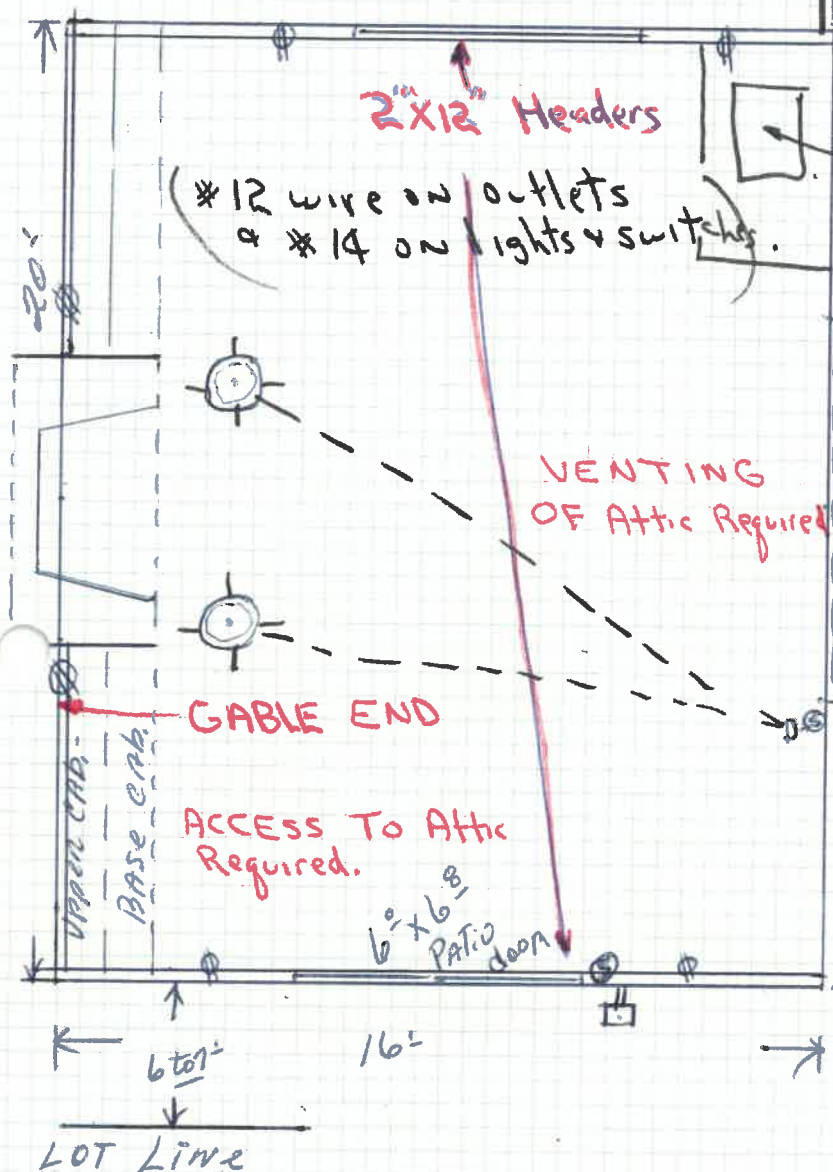 2"X12" Headers
#12 wire on outlets
& #14 on lights & switches.
20'
VENTING
OF Attic Required
GABLE END
UPPER CAB.
BASE CAB.
ACCESS To Attic
Required.
6⁰ x 6⁸
PATIO door
S
S
16'
6 to 7'
LOT Line